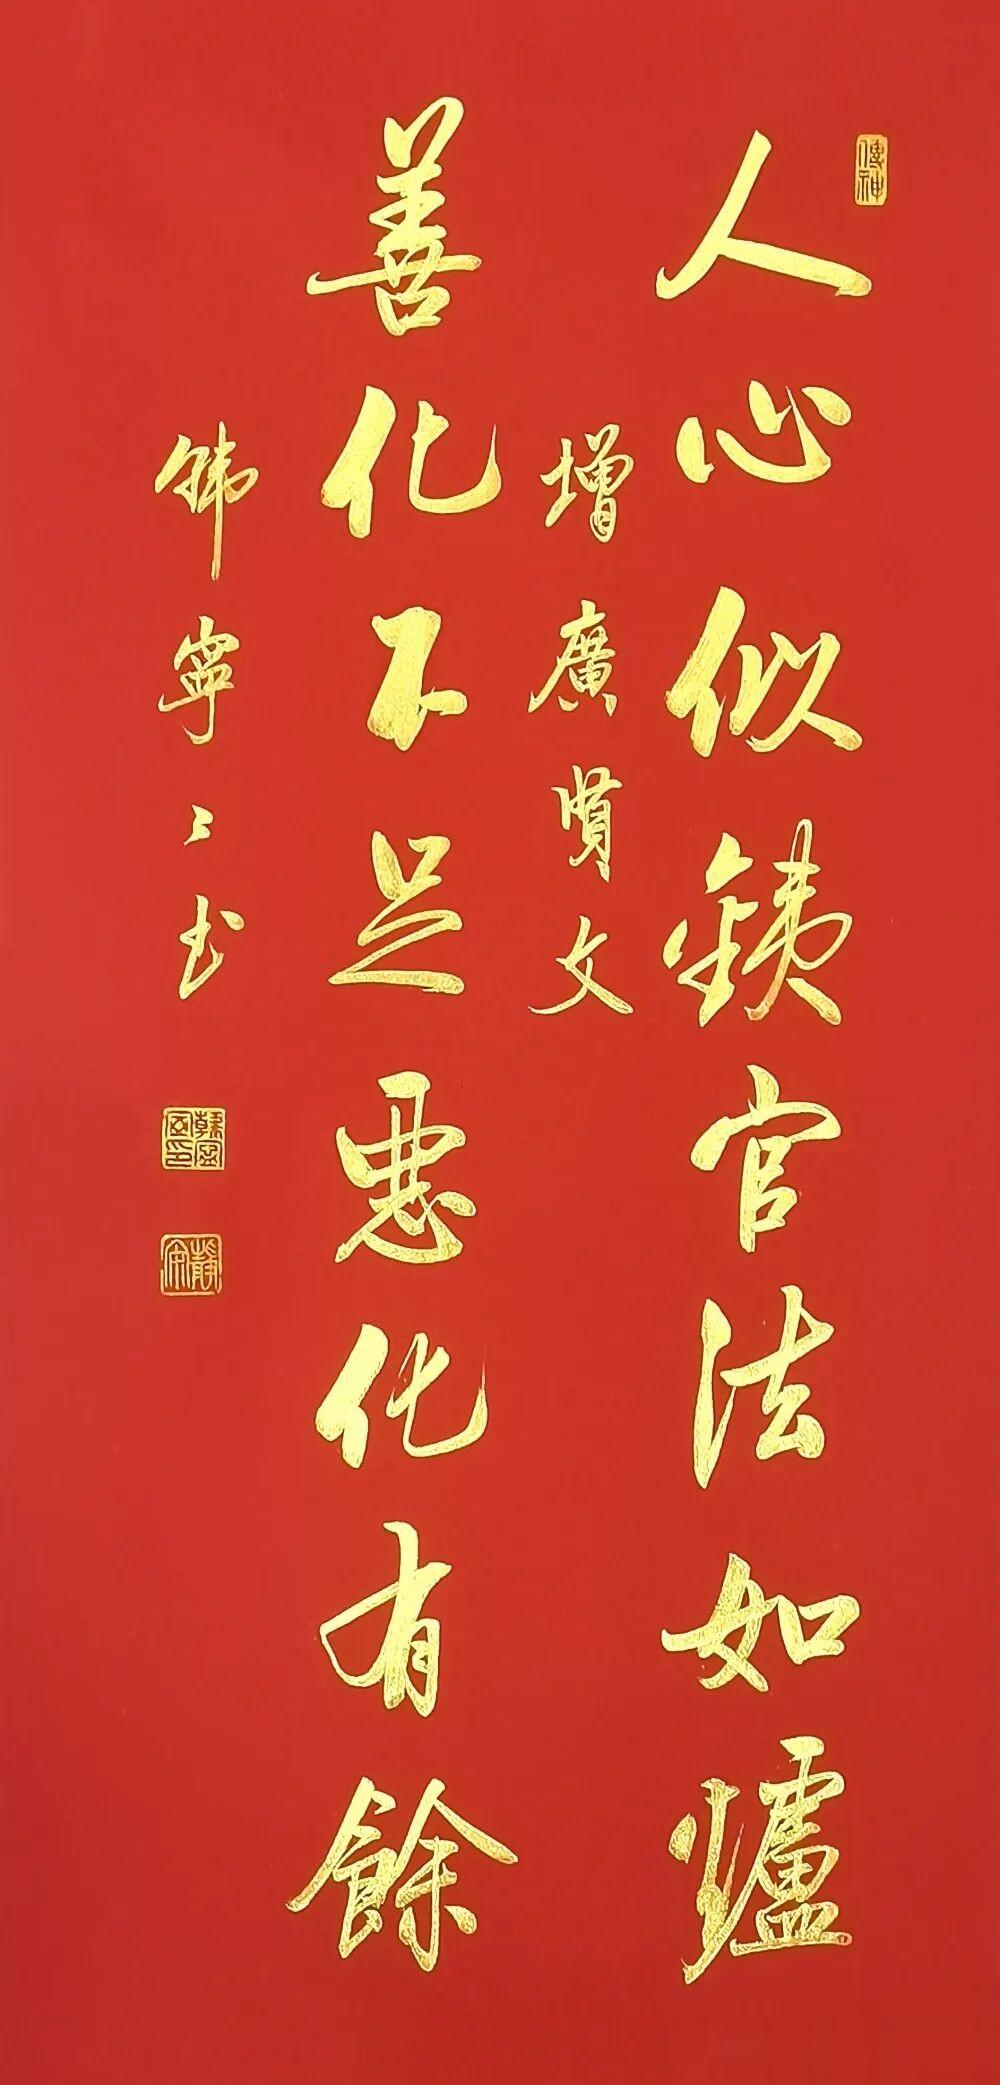 人心似鐵官法如爐
增廣賢文
善化不足惡化有餘
韩寧寧书